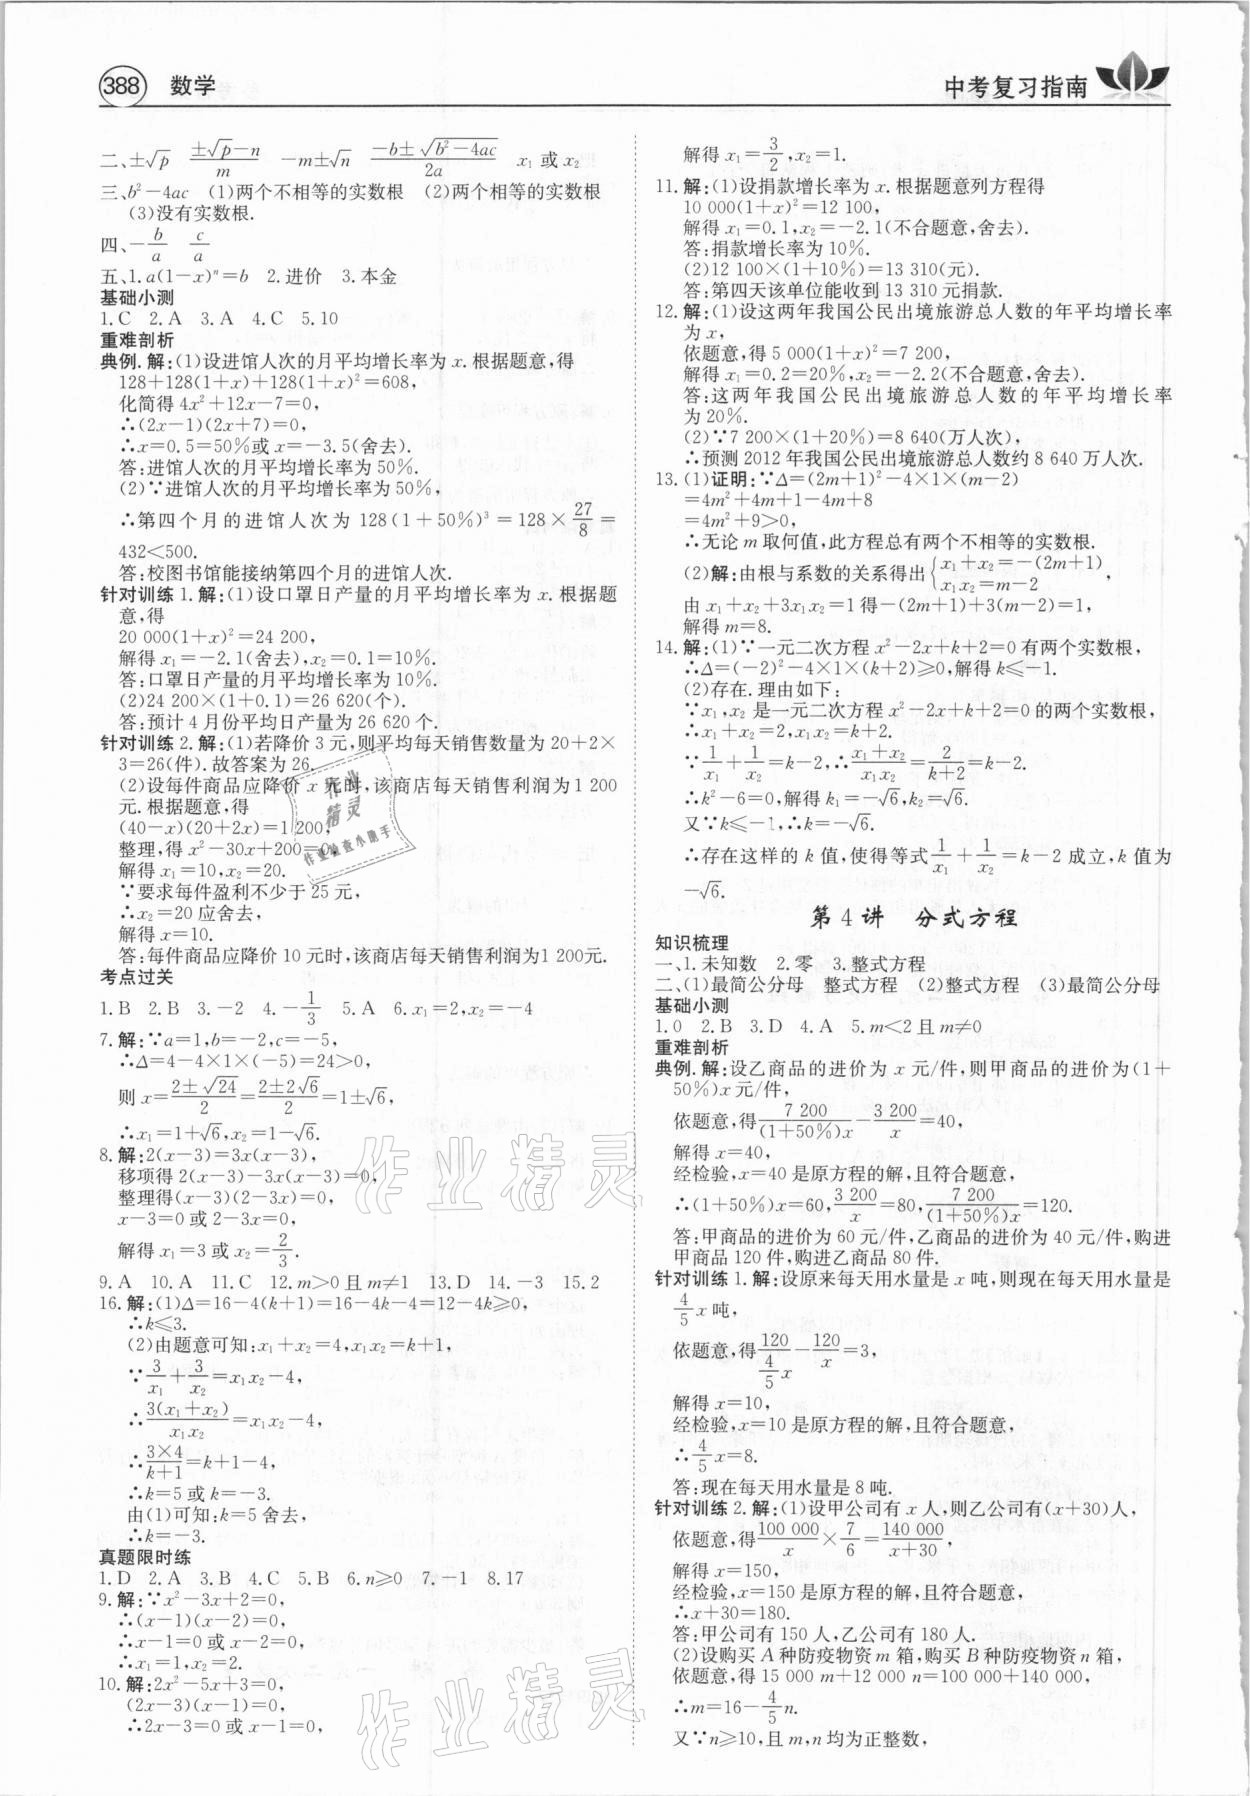 388 数学
中考复习指南
二、±√p　(±√p−n)/m　−m±√n　(−b±√(b²−4ac))/2a　x₁ 或 x₂
三、b²−4ac　(1)两个不相等的实数根　(2)两个相等的实数根
(3)没有实数根.
四、−b/a　c/a
五、1.a(1−x)ⁿ=b　2.进价　3.本金
基础小测
1.C　2.A　3.A　4.C　5.10
重难剖析
典例.解:(1)设进馆人次的月平均增长率为 x.根据题意,得
128+128(1+x)+128(1+x)²=608,
化简得 4x²+12x−7=0,
∴(2x−1)(2x+7)=0,
∴x=0.5=50%或 x=−3.5(舍去).
答:进馆人次的月平均增长率为 50%.
(2)∵进馆人次的月平均增长率为 50%,
∴第四个月的进馆人次为 128(1+50%)³=128×27/8=
432<500.
答:校图书馆能接纳第四个月的进馆人次.
针对训练 1.解:(1)设口罩日产量的月平均增长率为 x.根据题
意,得
20 000(1+x)²=24 200,
解得 x₁=−2.1(舍去),x₂=0.1=10%.
答:口罩日产量的月平均增长率为 10%.
(2)24 200×(1+0.1)=26 620(个).
答:预计 4 月份平均日产量为 26 620 个.
针对训练 2.解:(1)若降价 3 元,则平均每天销售数量为 20+2×
3=26(件).故答案为 26.
(2)设每件商品应降价 x 元时,该商店每天销售利润为 1 200
元.根据题意,得
(40−x)(20+2x)=1 200,
整理,得 x²−30x+200=0,
解得 x₁=10,x₂=20.
∵要求每件盈利不少于 25 元,
∴x₂=20 应舍去,
解得 x=10.
答:每件商品应降价 10 元时,该商店每天销售利润为1 200元.
考点过关
1.B　2.B　3.−2　4.−1/3　5.A　6.x₁=2,x₂=−4
7.解:∵a=1,b=−2,c=−5,
∴Δ=4−4×1×(−5)=24>0,
则 x=(2±√24)/2=(2±2√6)/2=1±√6,
∴x₁=1+√6,x₂=1−√6.
8.解:2(x−3)=3x(x−3),
移项得 2(x−3)−3x(x−3)=0,
整理得(x−3)(2−3x)=0,
x−3=0 或 2−3x=0,
解得 x₁=3 或 x₂=2/3.
9.A　10.A　11.C　12.m>0 且 m≠1　13.D　14.−3　15.2
16.解:(1)Δ=16−4(k+1)=16−4k−4=12−4k≥0,
∴k≤3.
(2)由题意可知:x₁+x₂=4,x₁x₂=k+1,
∵3/x₁+3/x₂=x₁x₂−4,
∴3(x₁+x₂)/x₁x₂=x₁x₂−4,
∴(3×4)/(k+1)=k+1−4,
∴k=5 或 k=−3.
由(1)可知:k=5 舍去,
∴k=−3.
真题限时练
1.D　2.A　3.B　4.C　5.B　6.n≥0　7.−1　8.17
9.解:∵x²−3x+2=0,
∴(x−1)(x−2)=0,
∴x−1=0 或 x−2=0,
∴x₁=1,x₂=2.
10.解:2x²−5x+3=0,
(2x−3)(x−1)=0,
∴2x−3=0 或 x−1=0,
解得 x₁=3/2,x₂=1.
11.解:(1)设捐款增长率为 x.根据题意列方程得
10 000(1+x)²=12 100,
解得 x₁=0.1,x₂=−2.1(不合题意,舍去).
答:捐款增长率为 10%.
(2)12 100×(1+10%)=13 310(元).
答:第四天该单位能收到 13 310 元捐款.
12.解:(1)设这两年我国公民出境旅游总人数的年平均增长率
为 x,
依题意,得 5 000(1+x)²=7 200,
解得 x₁=0.2=20%,x₂=−2.2(不合题意,舍去).
答:这两年我国公民出境旅游总人数的年平均增长率
为 20%.
(2)∵7 200×(1+20%)=8 640(万人次),
∴预测 2012 年我国公民出境旅游总人数约 8 640 万人次.
13.(1)证明:∵Δ=(2m+1)²−4×1×(m−2)
=4m²+4m+1−4m+8
=4m²+9>0,
∴无论 m 取何值,此方程总有两个不相等的实数根.
(2)解:由根与系数的关系得出{x₁+x₂=−(2m+1)
x₁x₂=m−2,
由 x₁+x₂+3x₁x₂=1 得−(2m+1)+3(m−2)=1,
解得 m=8.
14.解:(1)∵一元二次方程 x²−2x+k+2=0 有两个实数根,
∴Δ=(−2)²−4×1×(k+2)≥0,解得 k≤−1.
(2)存在.理由如下:
∵x₁,x₂ 是一元二次方程 x²−2x+k+2=0 的两个实数根,
∴x₁+x₂=2,x₁x₂=k+2.
∵1/x₁+1/x₂=k−2,∴(x₁+x₂)/x₁x₂=2/(k+2)=k−2.
∴k²−6=0,解得 k₁=−√6,k₂=√6.
又∵k≤−1,∴k=−√6.
∴存在这样的 k 值,使得等式1/x₁+1/x₂=k−2 成立,k 值为
−√6.
第 4 讲　分式方程
知识梳理
一、1.未知数　2.零　3.整式方程
二、(1)最简公分母　整式方程　(2)整式方程　(3)最简公分母
基础小测
1.0　2.B　3.D　4.A　5.m<2 且 m≠0
重难剖析
典例.解:设乙商品的进价为 x 元/件,则甲商品的进价为(1+
50%)x 元/件,
依题意,得7 200/(1+50%)x−3 200/x=40,
解得 x=40,
经检验,x=40 是原方程的解,且符合题意,
∴(1+50%)x=60,3 200/x=80,7 200/(1+50%)x=120.
答:甲商品的进价为 60 元/件,乙商品的进价为 40 元/件,购进
甲商品 120 件,购进乙商品 80 件.
针对训练 1.解:设原来每天用水量是 x 吨,则现在每天用水量是
4/5x 吨,
依题意,得120/(4/5x)−120/x=3,
解得 x=10,
经检验,x=10 是原方程的解,且符合题意,
∴4/5x=8.
答:现在每天用水量是 8 吨.
针对训练 2.解:(1)设甲公司有 x 人,则乙公司有(x+30)人,
依题意,得100 000/x×7/6=140 000/(x+30),
解得 x=150,
经检验,x=150 是原方程的解,且符合题意,
∴x+30=180.
答:甲公司有 150 人,乙公司有 180 人.
(2)设购买 A 种防疫物资 m 箱,购买 B 种防疫物资 n 箱,
依题意,得 15 000 m+12 000 n=100 000+140 000,
∴m=16−4/5n.
又∵n≥10,且 m,n 均为正整数,
作业
精灵
作业检查小助手
作业精灵
作业精灵